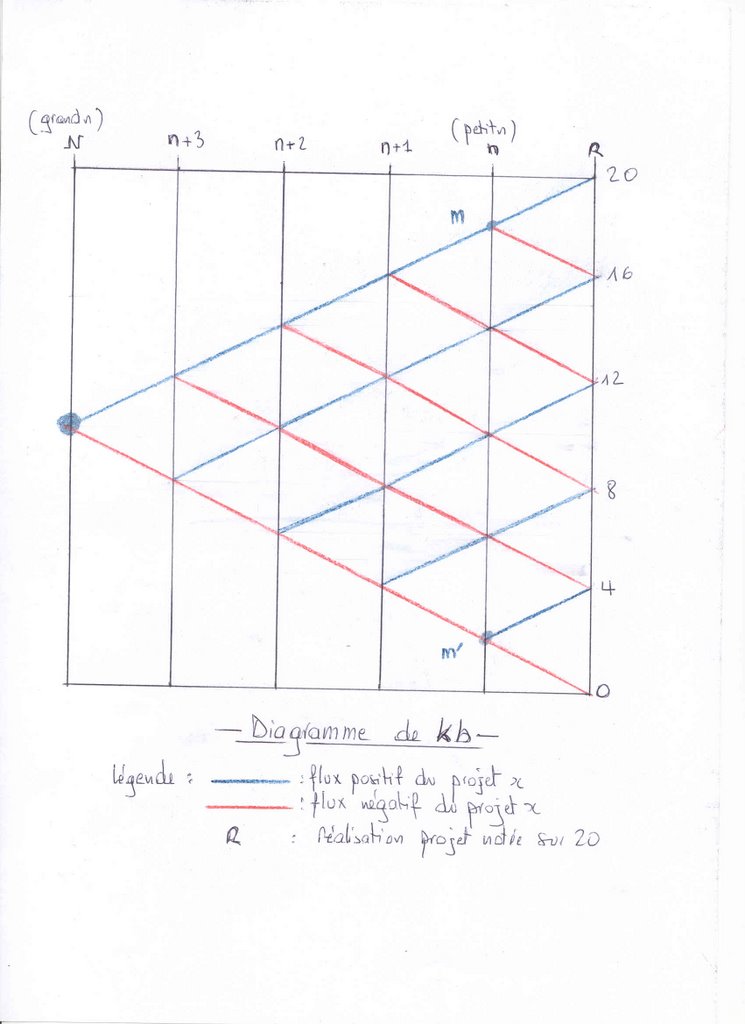 (grand n) (petit n)
N n+3 n+2 n+1 n R
20
m
16
12
8
4
m'
0
— Diagramme de kb —
légende : : flux positif du projet x
: flux négatif du projet x
R : réalisation projet notée sur 20